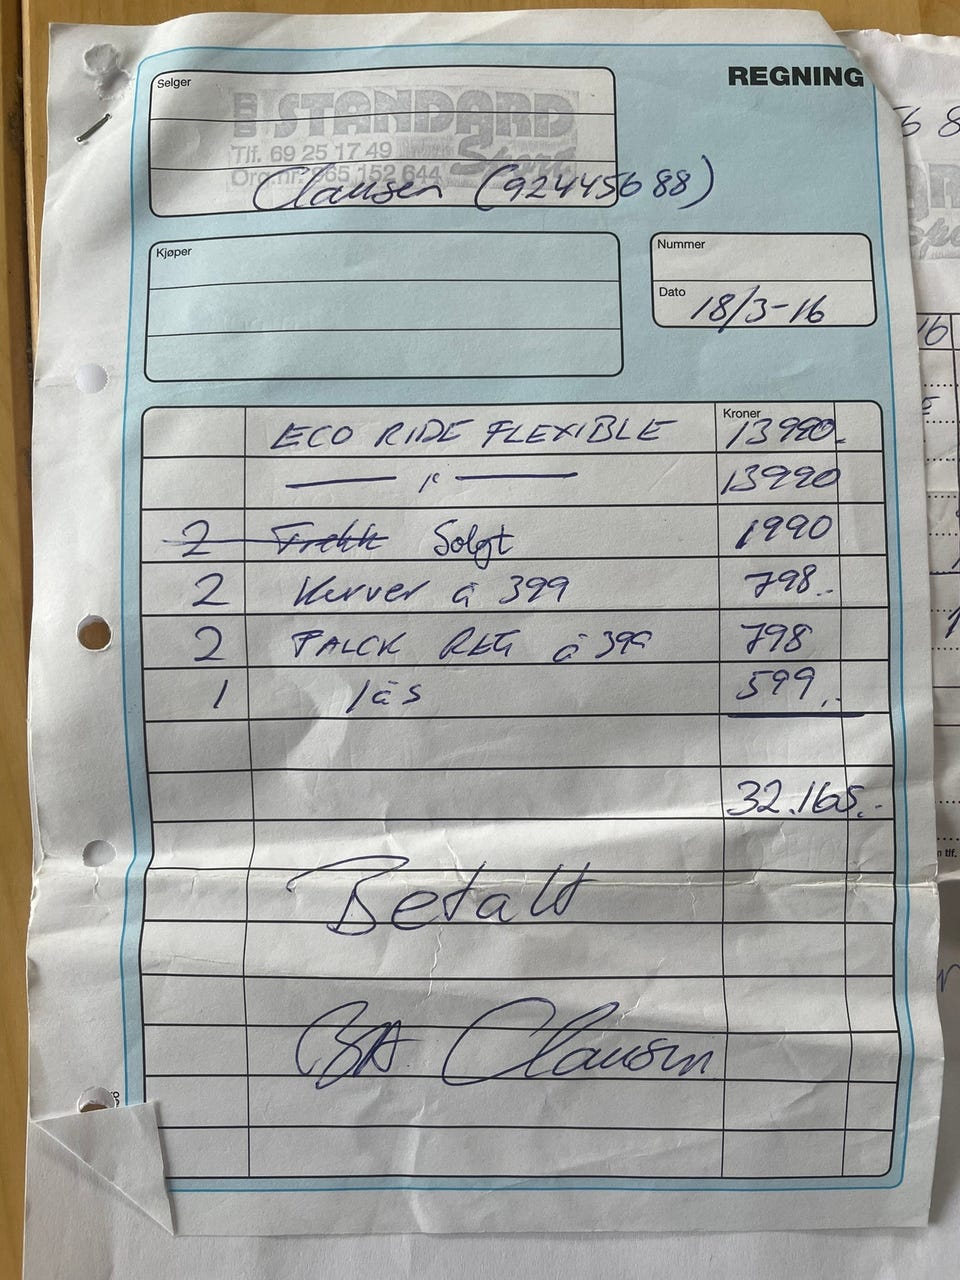 REGNING
Selger
STANDARD
Sport
Tlf. 69 25 17 49
Org.nr. 965 152 644
Clausen (92445688)
Kjøper
Nummer
Dato 18/3-16
Kroner
ECO RIDE FLEXIBLE 13990.-
—— " —— 13990
2 Trekk Solgt 1990
2 Kurver á 399 798.-
2 FALCK REG á 399 798
1 lås 599.-
32.165.-
Betalt
B.A. Clausen
6 8
16
5
m tlf.